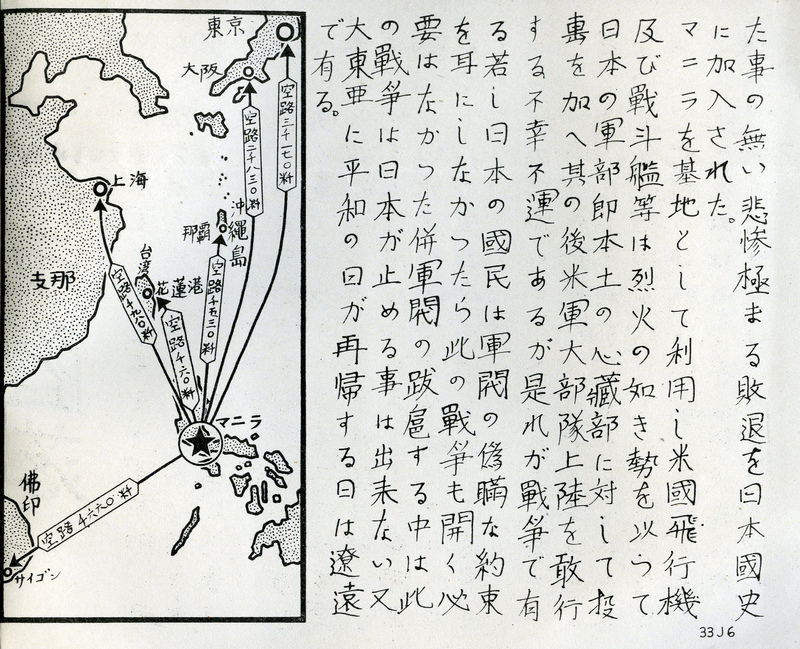 た事の無い悲惨極まる敗退を日本國史
に加入された。
マニラを基地として利用し米國飛行機
及び戰斗艦等は烈火の如き勢を以つて
日本の軍部即本土の心藏部に対して投
を加へ其の後米軍大部隊上陸を敢行
する不幸不運であるが是れが戰爭で有
る若し日本の國民は軍閥の偽瞞な約束
を耳にしなかつたら此の戰爭も開く必
要はなかつた併軍閥の跋扈する中は此
の戰爭は日本が止める事は出来ない又
大東亜に平和の日が再帰する日は遼遠
で有る。
東京
大阪
空路三千一七〇粁
空路二千八三〇粁
上海
沖縄島
那覇
台湾
花蓮港
支那
空路千九〇粁
空路千六〇粁
空路千五三〇粁
マニラ
佛印
空路千六六〇粁
サイゴン
33J6